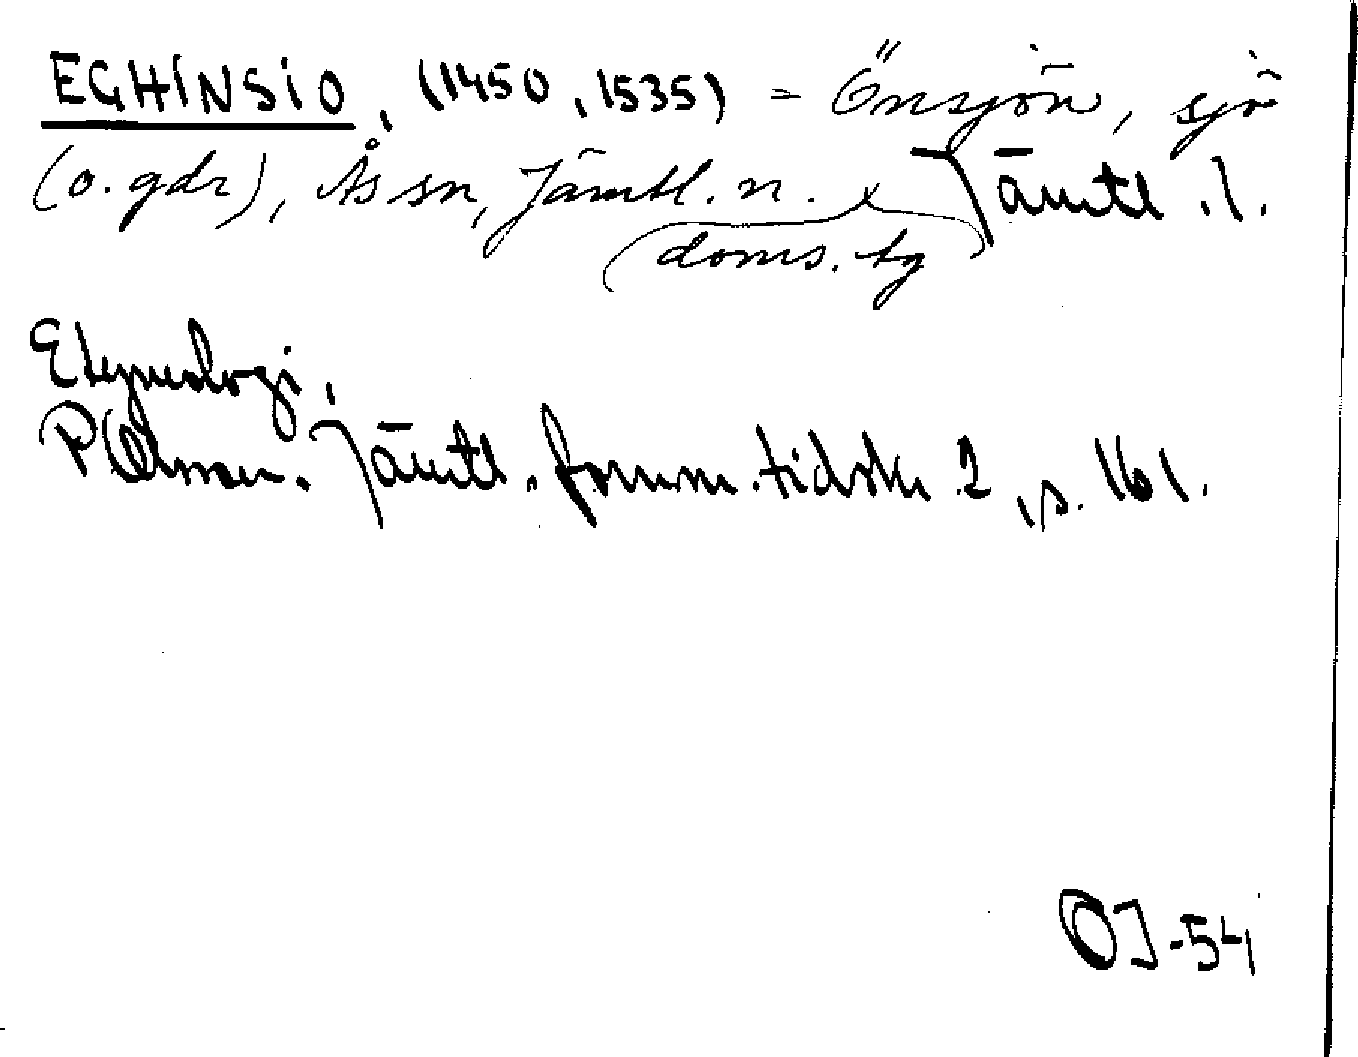 EGHINSIO, (1450, 1535) = Önsjön, sjö
(o. gdr), Ås sn, Jämtl. n. Jämtl. l.
doms. tg
Etymologi.
P Olsson. Jämtl. fornm. tidskr 2, s. 161.
OJ-54